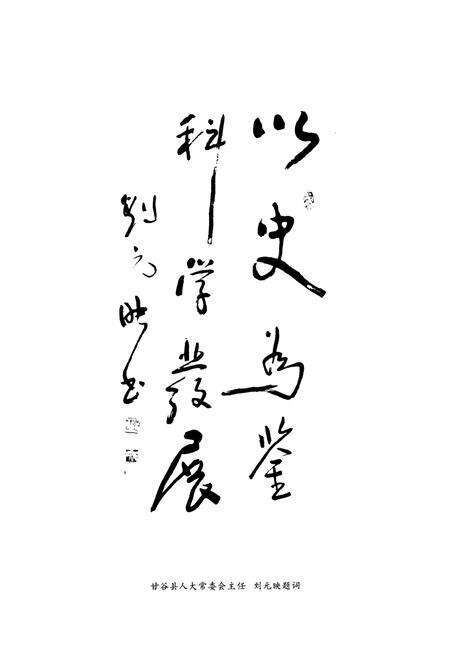 以史为鉴
科学發展
刘元映书
甘谷县人大常委会主任 刘元映题词